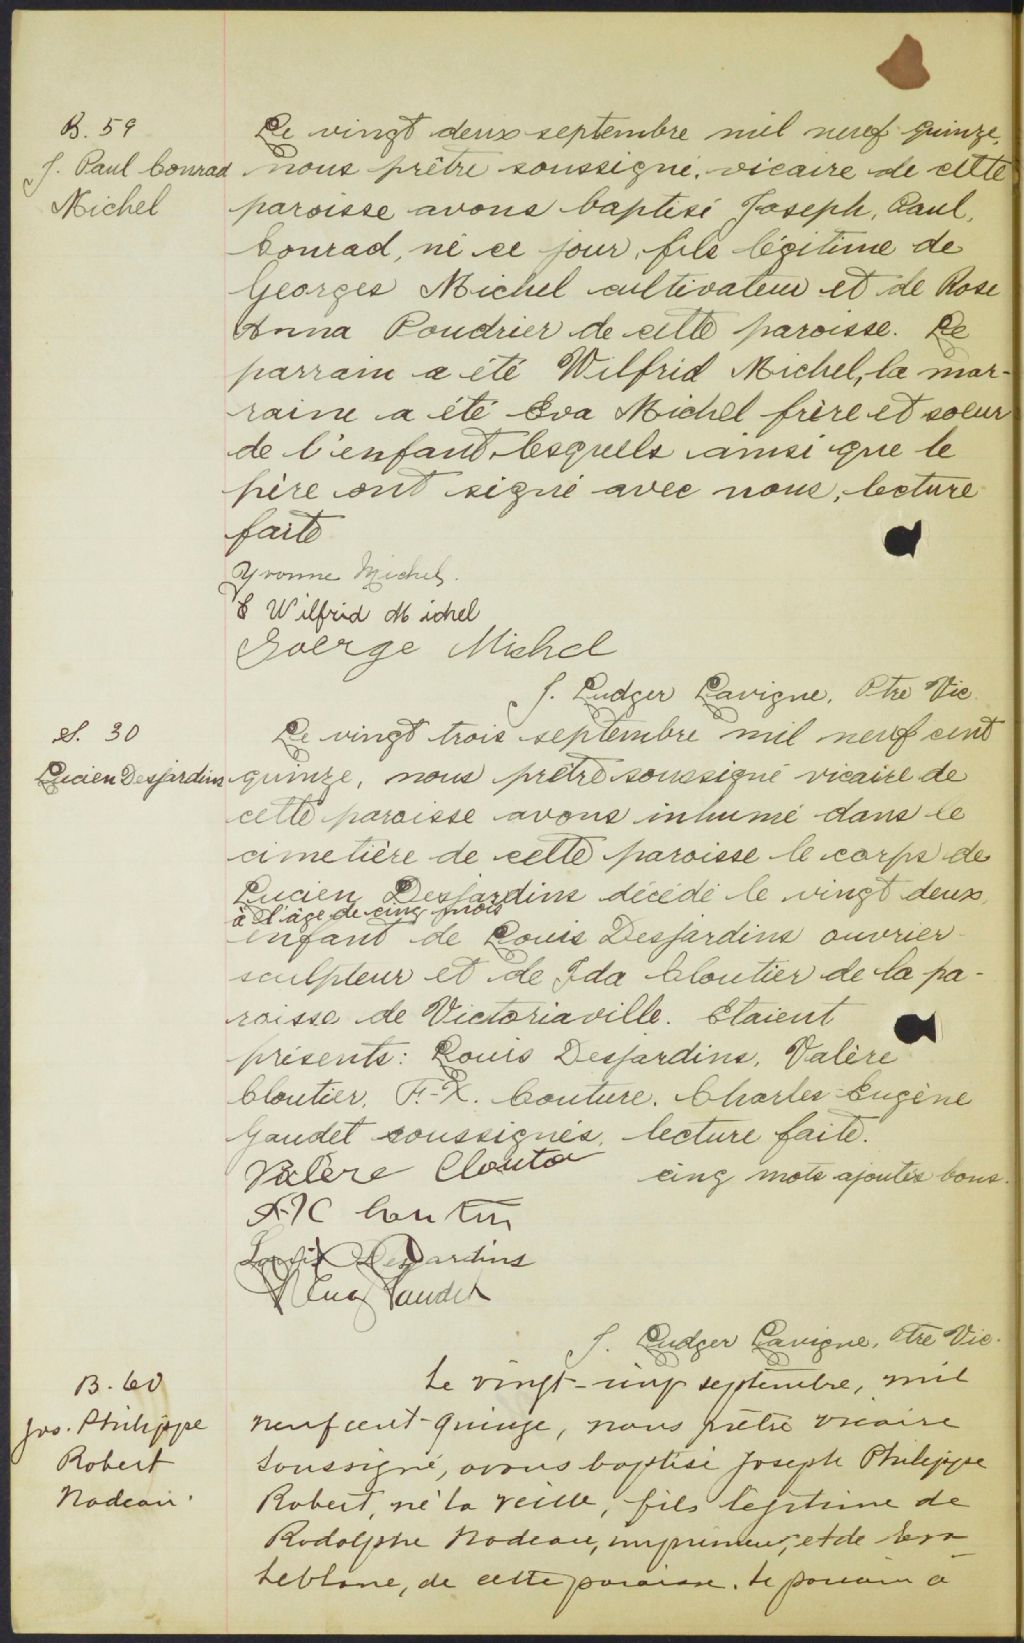 B. 59
J. Paul Conrad
Michel
Le vingt deux septembre mil neuf quinze,
nous prêtre soussigné, vicaire de cette
paroisse avons baptisé Joseph, Paul,
Conrad, né ce jour, fils légitime de
Georges Michel cultivateur et de Rose
Anna Poudrier de cette paroisse. Le
parrain a été Wilfrid Michel, la mar-
raine a été Eva Michel frère et soeur
de l'enfant, lesquels ainsi que le
père ont signé avec nous, lecture
faite
Yvonne Michel.
Wilfrid Michel
Goerge Michel
J. Ludger Lavigne, Ptre Vic.
S. 30
Lucien Desjardins
Le vingt trois septembre mil neuf cent
quinze, nous prêtre soussigné vicaire de
cette paroisse avons inhumé dans le
cimetière de cette paroisse le corps de
Lucien Desjardins décédé le vingt deux,
à l'âge de cinq mois
enfant de Louis Desjardins ouvrier
sculpteur et de Ida Cloutier de la pa-
roisse de Victoriaville. Etaient
présents: Louis Desjardins, Valère
Cloutier, F.-X. Couture. Charles-Eugène
Gaudet soussignés, lecture faite.
Valère Cloutier
cinq mots ajoutés bons.
Louis Desjardins
Eug Gaudet
J. Ludger Lavigne, Ptre Vic.
B. 60
Jos. Philippe
Robert
Nadeau.
Le vingt-cinq septembre, mil
neuf cent-quinze, nous prêtre vicaire
soussigné, avons baptisé Joseph Philippe
Robert, né la veille, fils légitime de
Rodolphe Nadeau, imprimeur, et de
Leblanc, de cette paroisse. Le parrain a